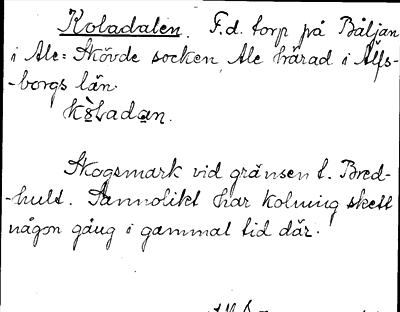 Koladalen. F.d. torp på Båljan
i Ale-Skövde socken, Ale härad i Älfs-
-borgs län.
kòladan.
Skogsmark vid gränsen t. Bred-
-hult. Sannolikt har kolning skett
någon gång i gammal tid där.